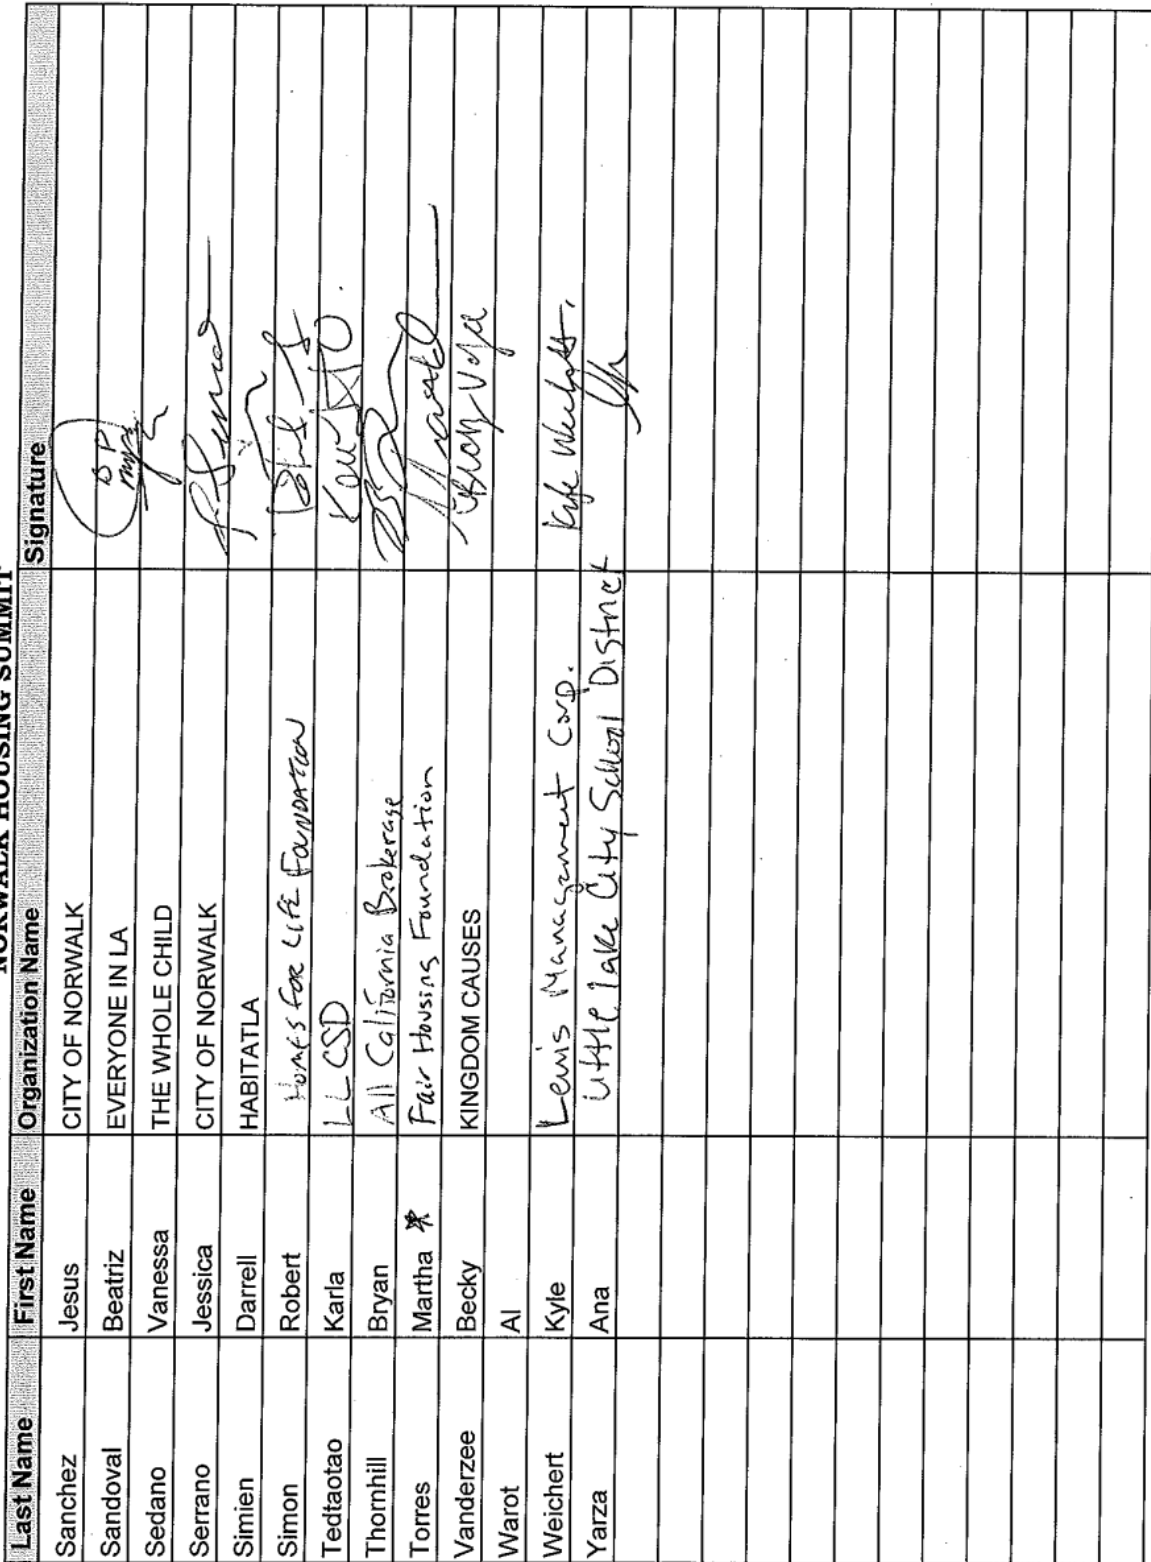 NORWALK HOUSING SUMMIT
Last Name First Name Organization Name Signature
Sanchez Jesus CITY OF NORWALK
Sandoval Beatriz EVERYONE IN LA
Sedano Vanessa THE WHOLE CHILD
Serrano Jessica CITY OF NORWALK
Simien Darrell HABITATLA
Simon Robert HOMES FOR LIFE FOUNDATION
Tedtaotao Karla LLCSD
Thornhill Bryan All California Brokerage
Torres Martha * Fair Housing Foundation
Vanderzee Becky KINGDOM CAUSES
Warot Al
Weichert Kyle Lewis Management Corp.
Yarza Ana Little Lake City School District